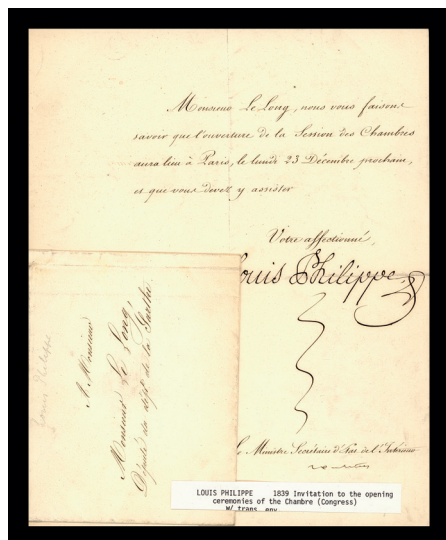 Monsieur Le Long, nous vous faisons
savoir que l'ouverture de la Session des Chambres
aura lieu à Paris, le lundi 23 Décembre prochain,
et que vous devez y assister
Votre affectionné,
ouis Philippe
Le Ministre Secrétaire d'Etat de l'Intérieur
Louis Philippe
A Monsieur
Monsieur Le Long,
Député du dépt de la Sarthe
LOUIS PHILIPPE 1839 Invitation to the opening
ceremonies of the Chambre (Congress)
W/ trans. env